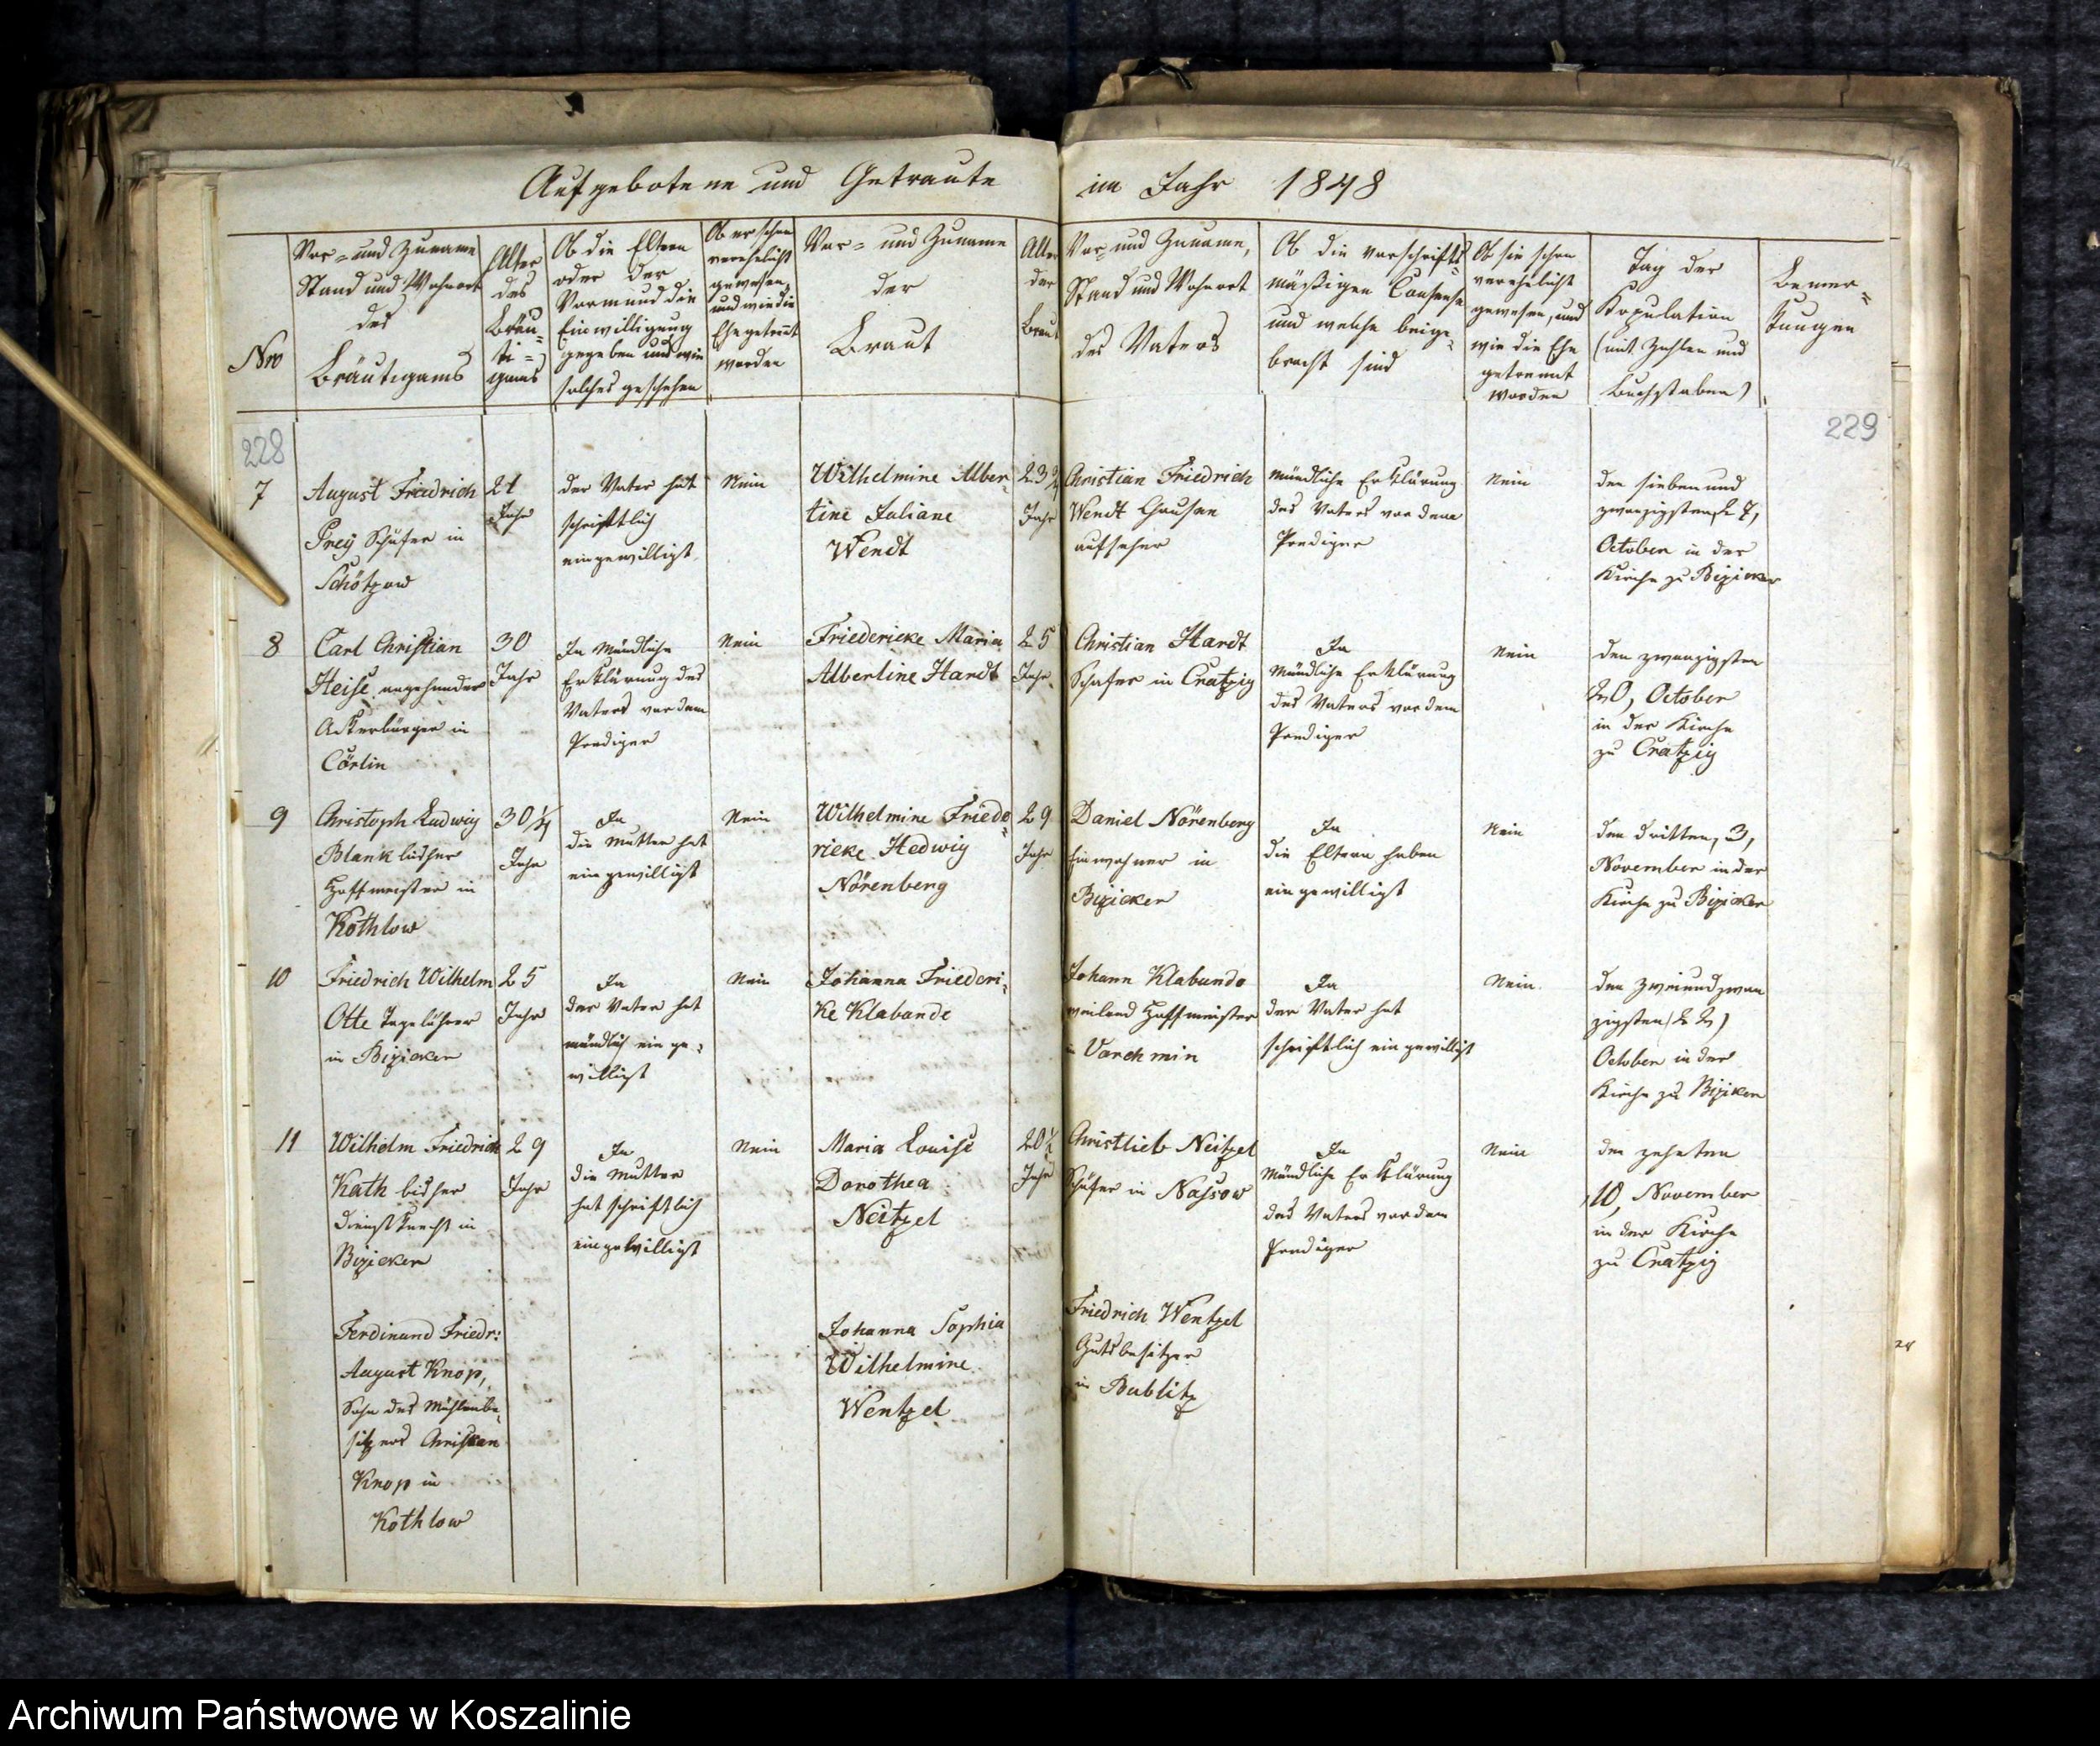 Aufgebotene und Getraute im Jahr 1848
Nro
Vor- und Zuname
Stand und Wohnort
des
Bräutigams
Alter
des
Bräu-
ti-
gams
Ob die Eltern
oder der
Vormund die
Einwilligung
gegeben und wie
solches geschehen
Ob er schon
verehelicht
gewesen,
und wie die
Ehe getrennt
worden
Vor- und Zuname
der
Braut
Alter
der
Braut
Vor- und Zuname,
Stand und Wohnort
des Vaters
Ob die vorschrifts-
mäßigen Consense
und welche beige-
bracht sind
Ob sie schon
verehelicht
gewesen, und
wie die Ehe
getrennt
worden
Tag der
Kopulation
(mit Zahlen und
Buchstaben)
Bemer-
kungen
228
229
7
August Friedrich
Prey Schäfer in
Schötzow
21
Jahr
der Vater hat
schriftlich
eingewilligt
Nein
Wilhelmine Alber-
tine Juliane
Wendt
23 3/4
Jahr
Christian Friedrich
Wendt
aufseher
mündliche Erklärung
des Vaters vor dem
Prediger
Nein
den sieben und
zwanzigsten 27,
October in der
Kirche zu Biziker
8
Carl Christian
Heise angehender
Ackerbürger in
Cörlin
30
Jahr
Ja Mündliche
Erklärung des
Vaters vor dem
Prediger
Nein
Friedericke Maria
Albertine Hardt
25
Jahr
Christian Hardt
Schäfer in Cratzig
Ja
Mündliche Erklärung
des Vaters vor dem
Prediger
Nein
den zwanzigsten
20, October
in der Kirche
zu Cratzig
9
Christoph Ludwig
Blank bisher
Hoffmeister in
Kothlow
30 1/4
Jahr
Ja
die Mutter hat
eingewilligt
Nein
Wilhelmine Friede-
ricke Hedwig
Nörenberg
29
Jahr
Daniel Nörenberg
Einwohner in
Biziker
Ja
die Eltern haben
eingewilligt
Nein
den dritten, 3,
November in der
Kirche zu Biziker
10
Friedrich Wilhelm
Otte Tagelöhner
in Biziker
25
Jahr
Ja
der Vater hat
mündlich einge-
willigt
Nein
Johanna Friederi-
ke Klabunde
Johann Klabunde
weiland Hoffmeister
in Varchmin
Ja
der Vater hat
schriftlich eingewilligt
Nein
den zweiundzwan
zigsten (22)
October in der
Kirche zu Biziker
11
Wilhelm Friedrich
Kath bisher
Dienstknecht in
Biziker
29
Jahr
Ja
die Mutter
hat schriftlich
eingewilligt
Nein
Maria Louise
Dorothea
Neitzel
20 1/2
Jahr
Christlieb Neitzel
Schäfer in Nassow
Ja
Mündliche Erklärung
des Vaters vor dem
Prediger
Nein
den zehnten
10, November
in der Kirche
zu Cratzig
Ferdinand Friedr:
August Knop,
Sohn des Mühlenbe-
sitzers Christian
Knop in
Kothlow
Johanna Sophia
Wilhelmine
Wentzel
Friedrich Wentzel
Gutsbesitzer
in Bublitz
Archiwum Państwowe w Koszalinie